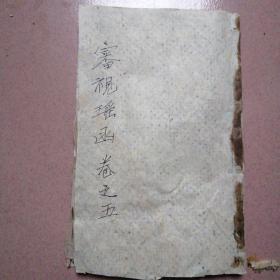 審視瑶函卷之五